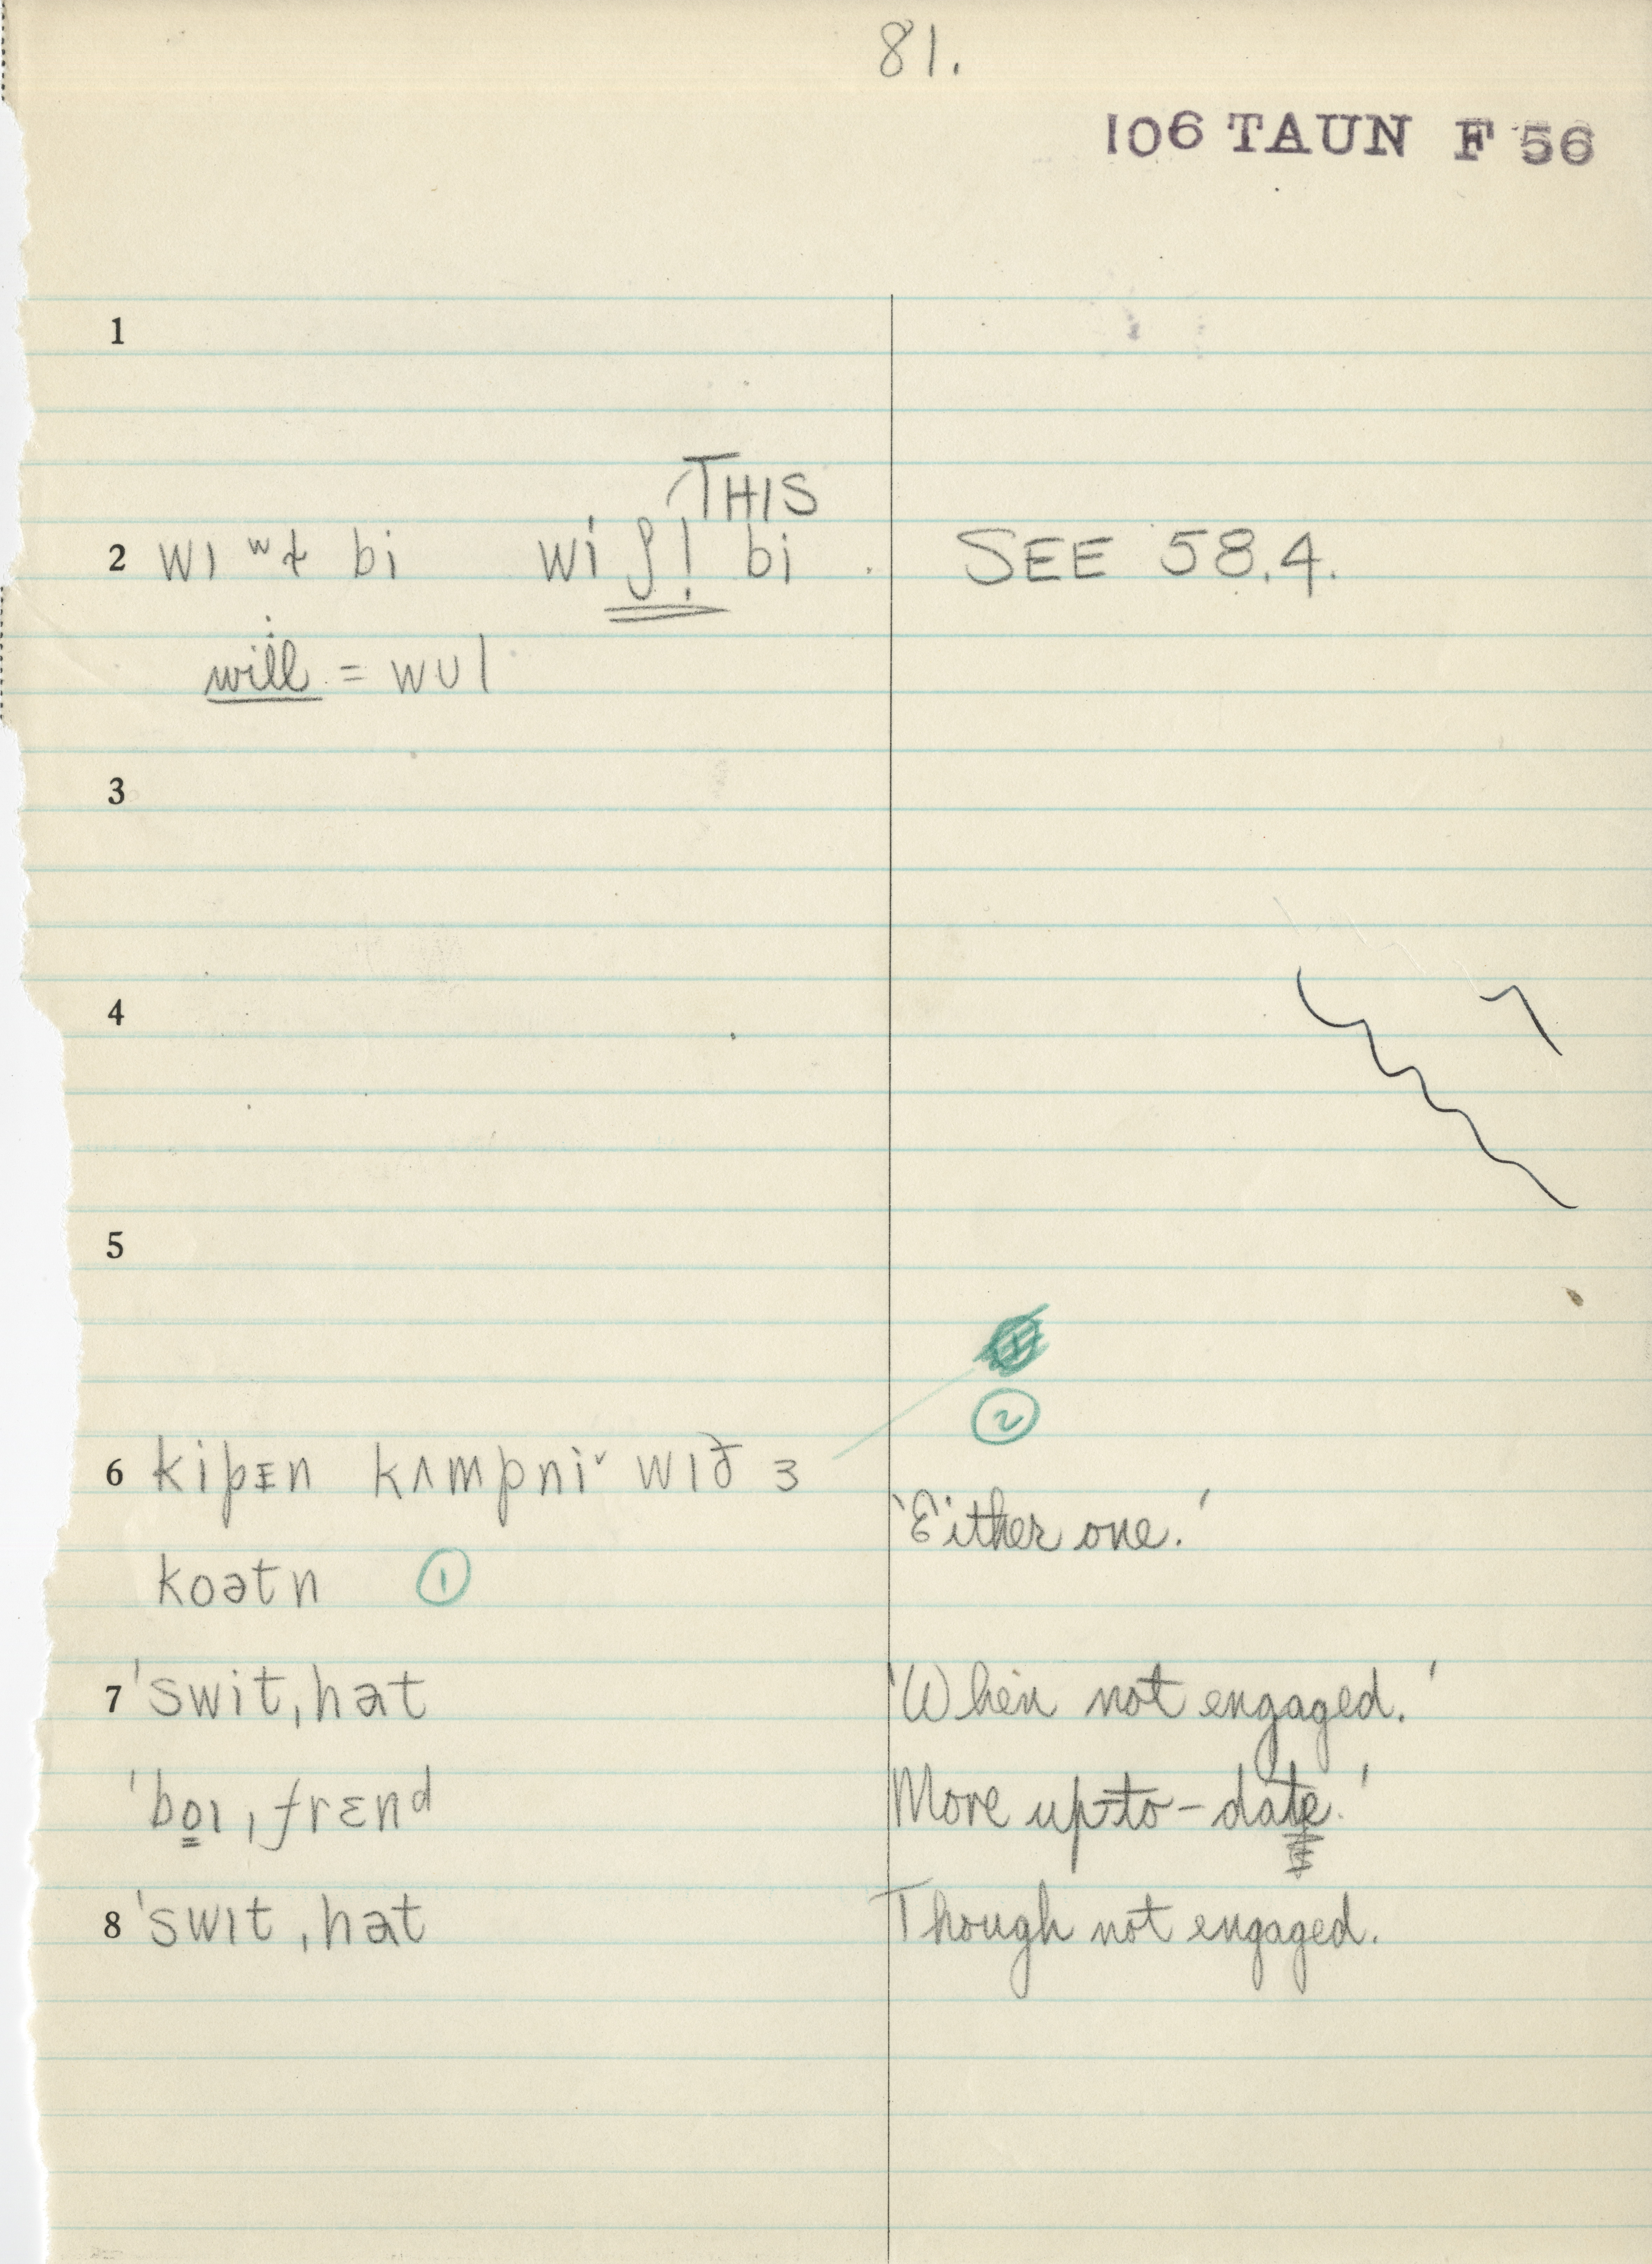 81.
106 TAUN F 56
1
THIS
2 wɪ wɫ bi wi ʃ! bi SEE 58.4.
will = wʊl
3
4
5
2
6 kipɪn kʌmpniˇ wɪð ɜ
'Either one.'
koətn 1
7 ˈswitˌhat 'When not engaged.'
ˈbo̳ɪˌfrɛnd More up-to-date.'
8 ˈswɪtˌhat Though not engaged.